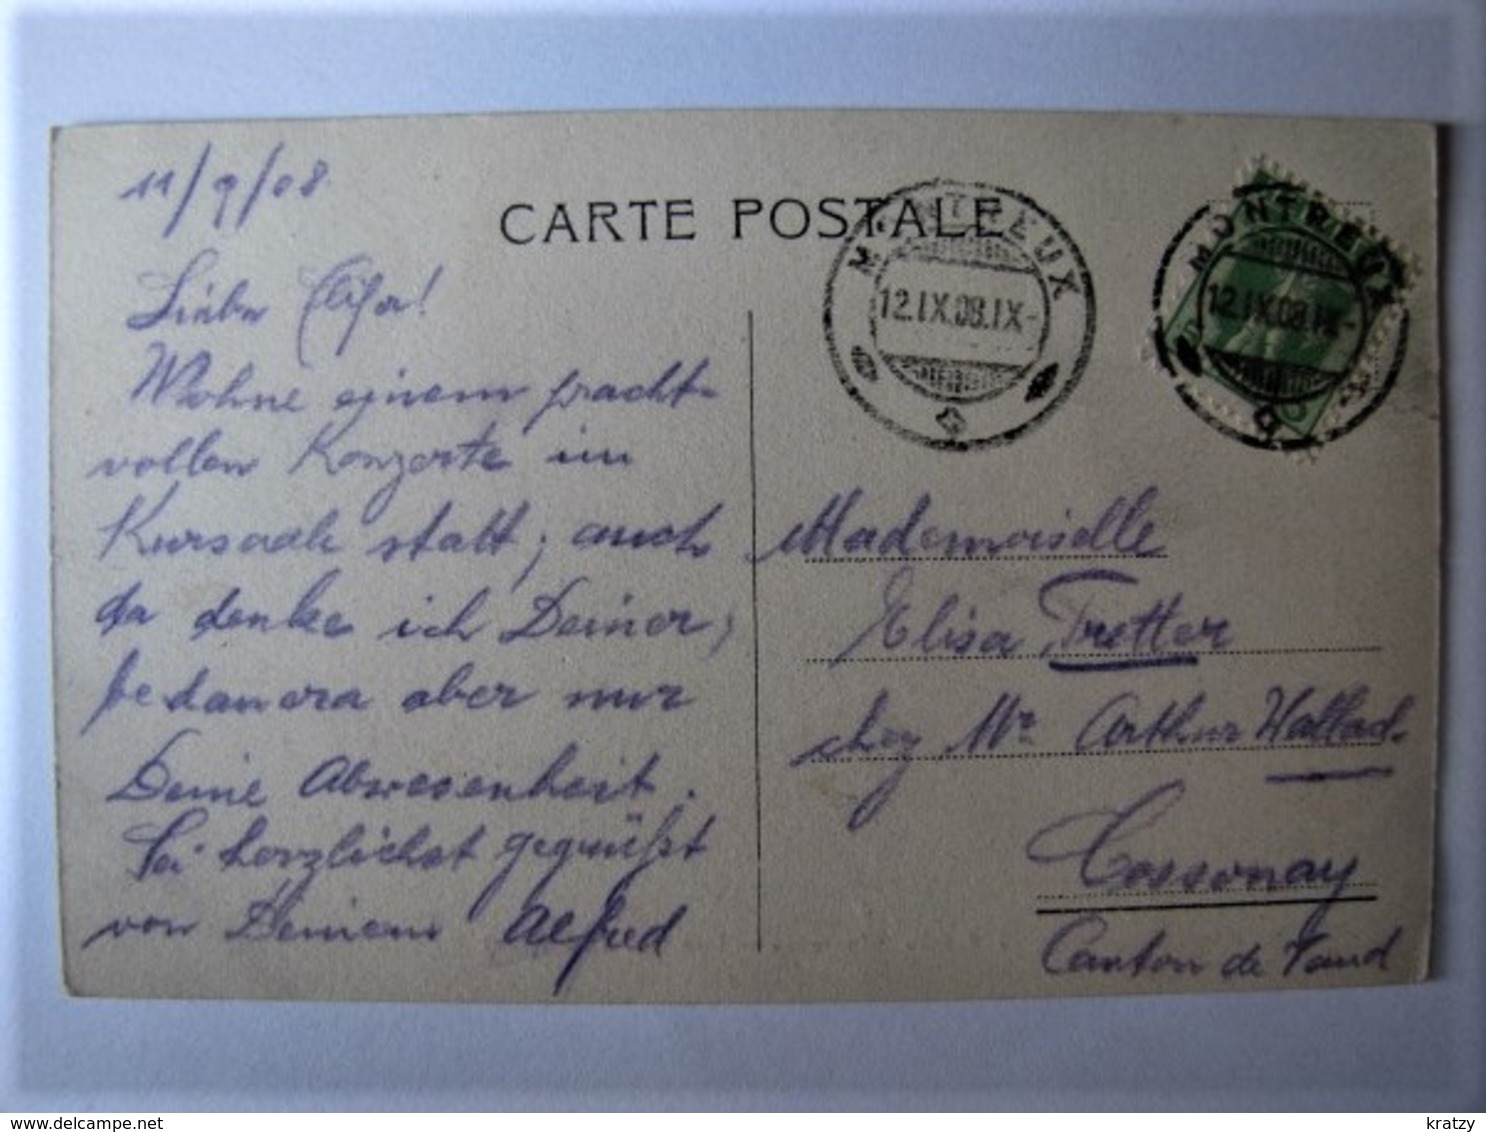 11/9/08
CARTE POSTALE
MONTREUX
12.IX.08.IX-
MONTREUX
12.IX.08.IX-
Liebe Elisa!
Wohne einem pracht-
vollen Konzerte im
Kursaale statt, auch
da denke ich Deiner,
bedauere aber nur
Deine Abwesenheit.
Sei herzlichst gegrüßt
von Deinem Alfred
Mademoiselle
Elisa Tretter
chez Mr Arthur
Cossonay
Canton de Vaud
delcampe.net
kratzy